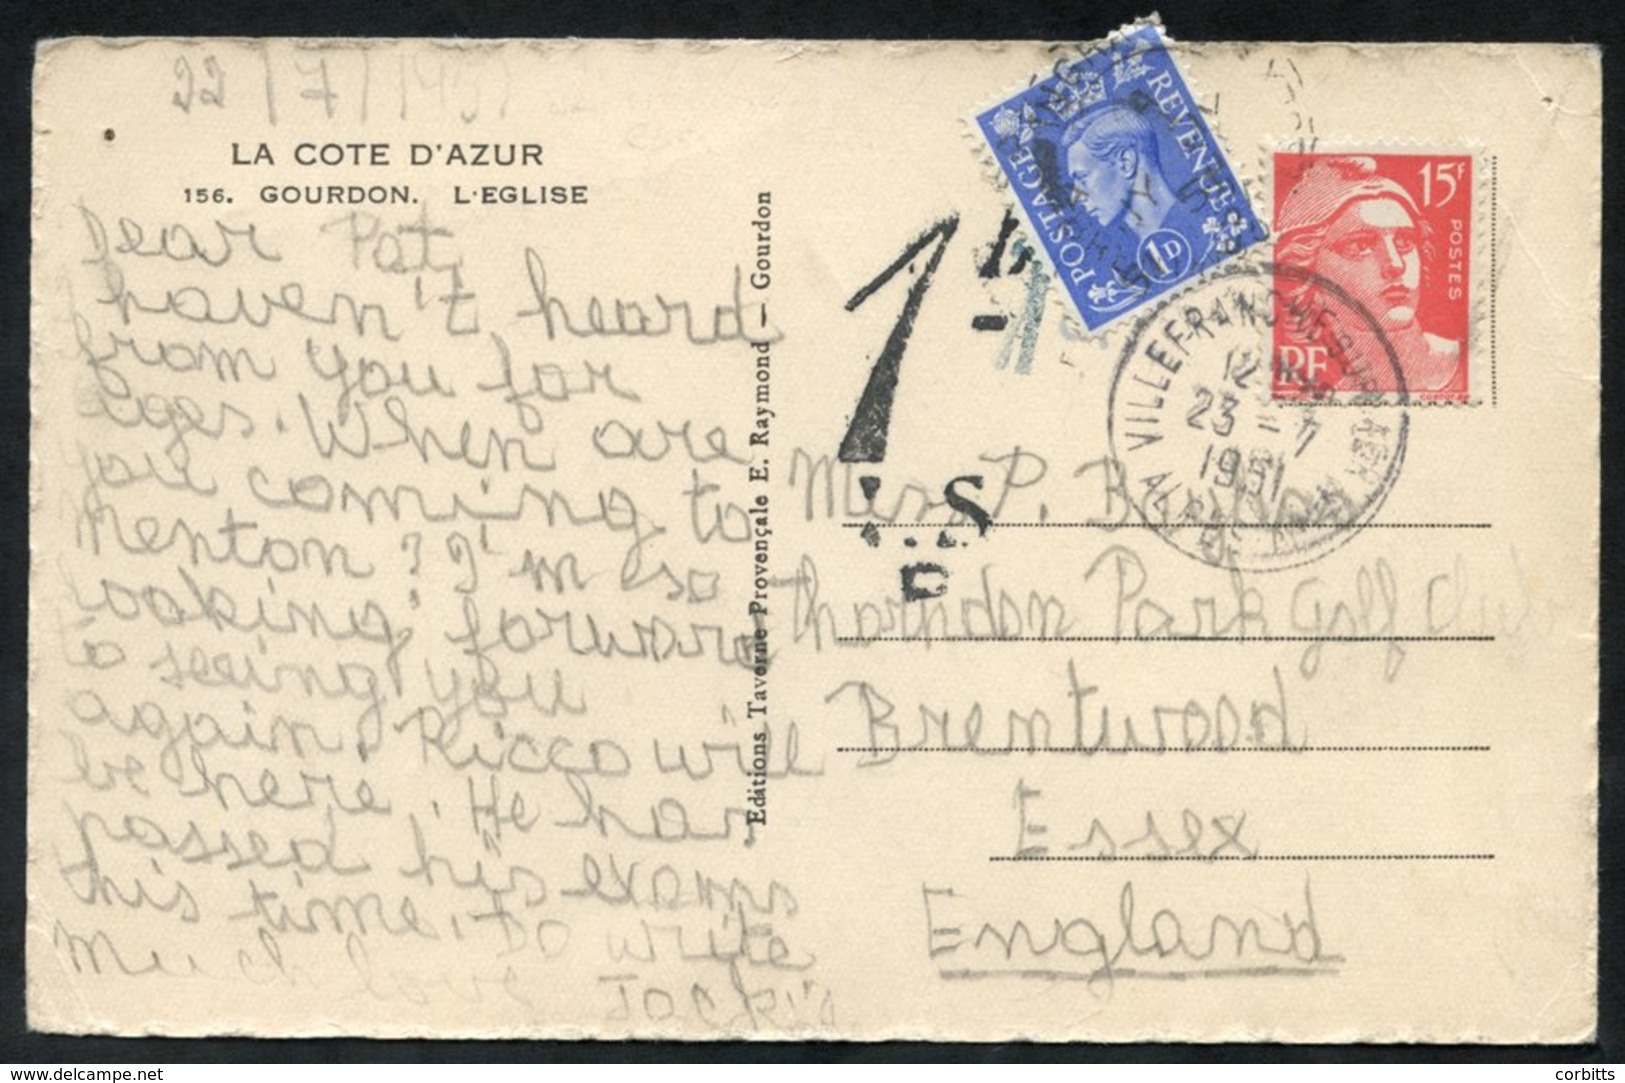 22/7/1951
LA COTE D'AZUR
156. GOURDON. L'EGLISE
Dear Pat,
haven't heard
from you for
ages. When are
you coming to
Menton? I'm so
looking forward
to seeing you
again. Ricco will
be here. He has
passed his exams
this time. Do write
Much love
Jackie
Editions Taverne-Provençale E. Raymond - Gourdon
1D
I.S
POSTAGE REVENUE
1D
15F
POSTES
RF
VILLEFRANCHE SUR MER
12
23 - 7
1951
Miss P.
Thorndon Park Golf Club
Brentwood
Essex
England
delcampe.net
corbitts